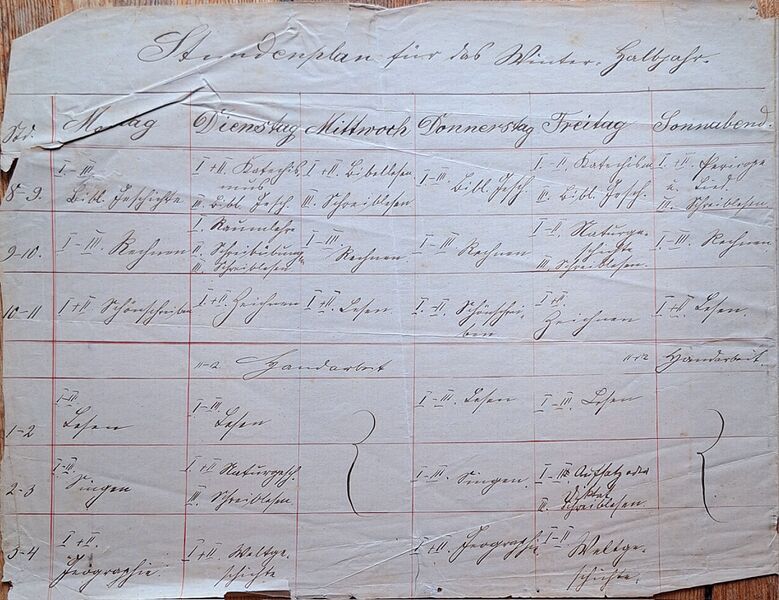 Stundenplan für das Winter-Halbjahr.
Std. Montag Dienstag Mittwoch Donnerstag Freitag Sonnabend.
8-9. I-III Bibl. Geschichte
I+II Katechis
mus
III. Bibl. Gesch.
I+II Bibellesen
III. Schreiblesen
I-III. Bibl. Gesch.
I-II. Katechism
III. Bibl. Gesch.
I+II Pericope
u. Lied.
III. Schreiblesen
9-10. I-III. Rechnen
I. Raumlehre
II. Schreibübung
III. Schreiblesen
I-III
Rechnen
I-III. Rechnen
I+II. Naturge-
schichte
III. Schreiblesen.
I-III. Rechnen
10-11 I+II Schönschreiben
I+II Zeichnen
I+II. Lesen.
I.-II. Schönschrei-
ben
I+II
Zeichnen
I+II. Lesen.
11-12 Handarbeit
11-12 Handarbeit.
1-2 I-III
Lesen
I-III.
Lesen
I-III. Lesen
I-III. Lesen
2-3 I-III.
Singen
I+II Naturgesch.
III. Schreiblesen.
I-III. Singen.
Aufsatz oder
Diktat
III. Schreiblesen.
3-4 I+II.
Geographie.
I+II. Weltge-
schichte
I+II. Geographie
I+II
Weltge-
schichte.